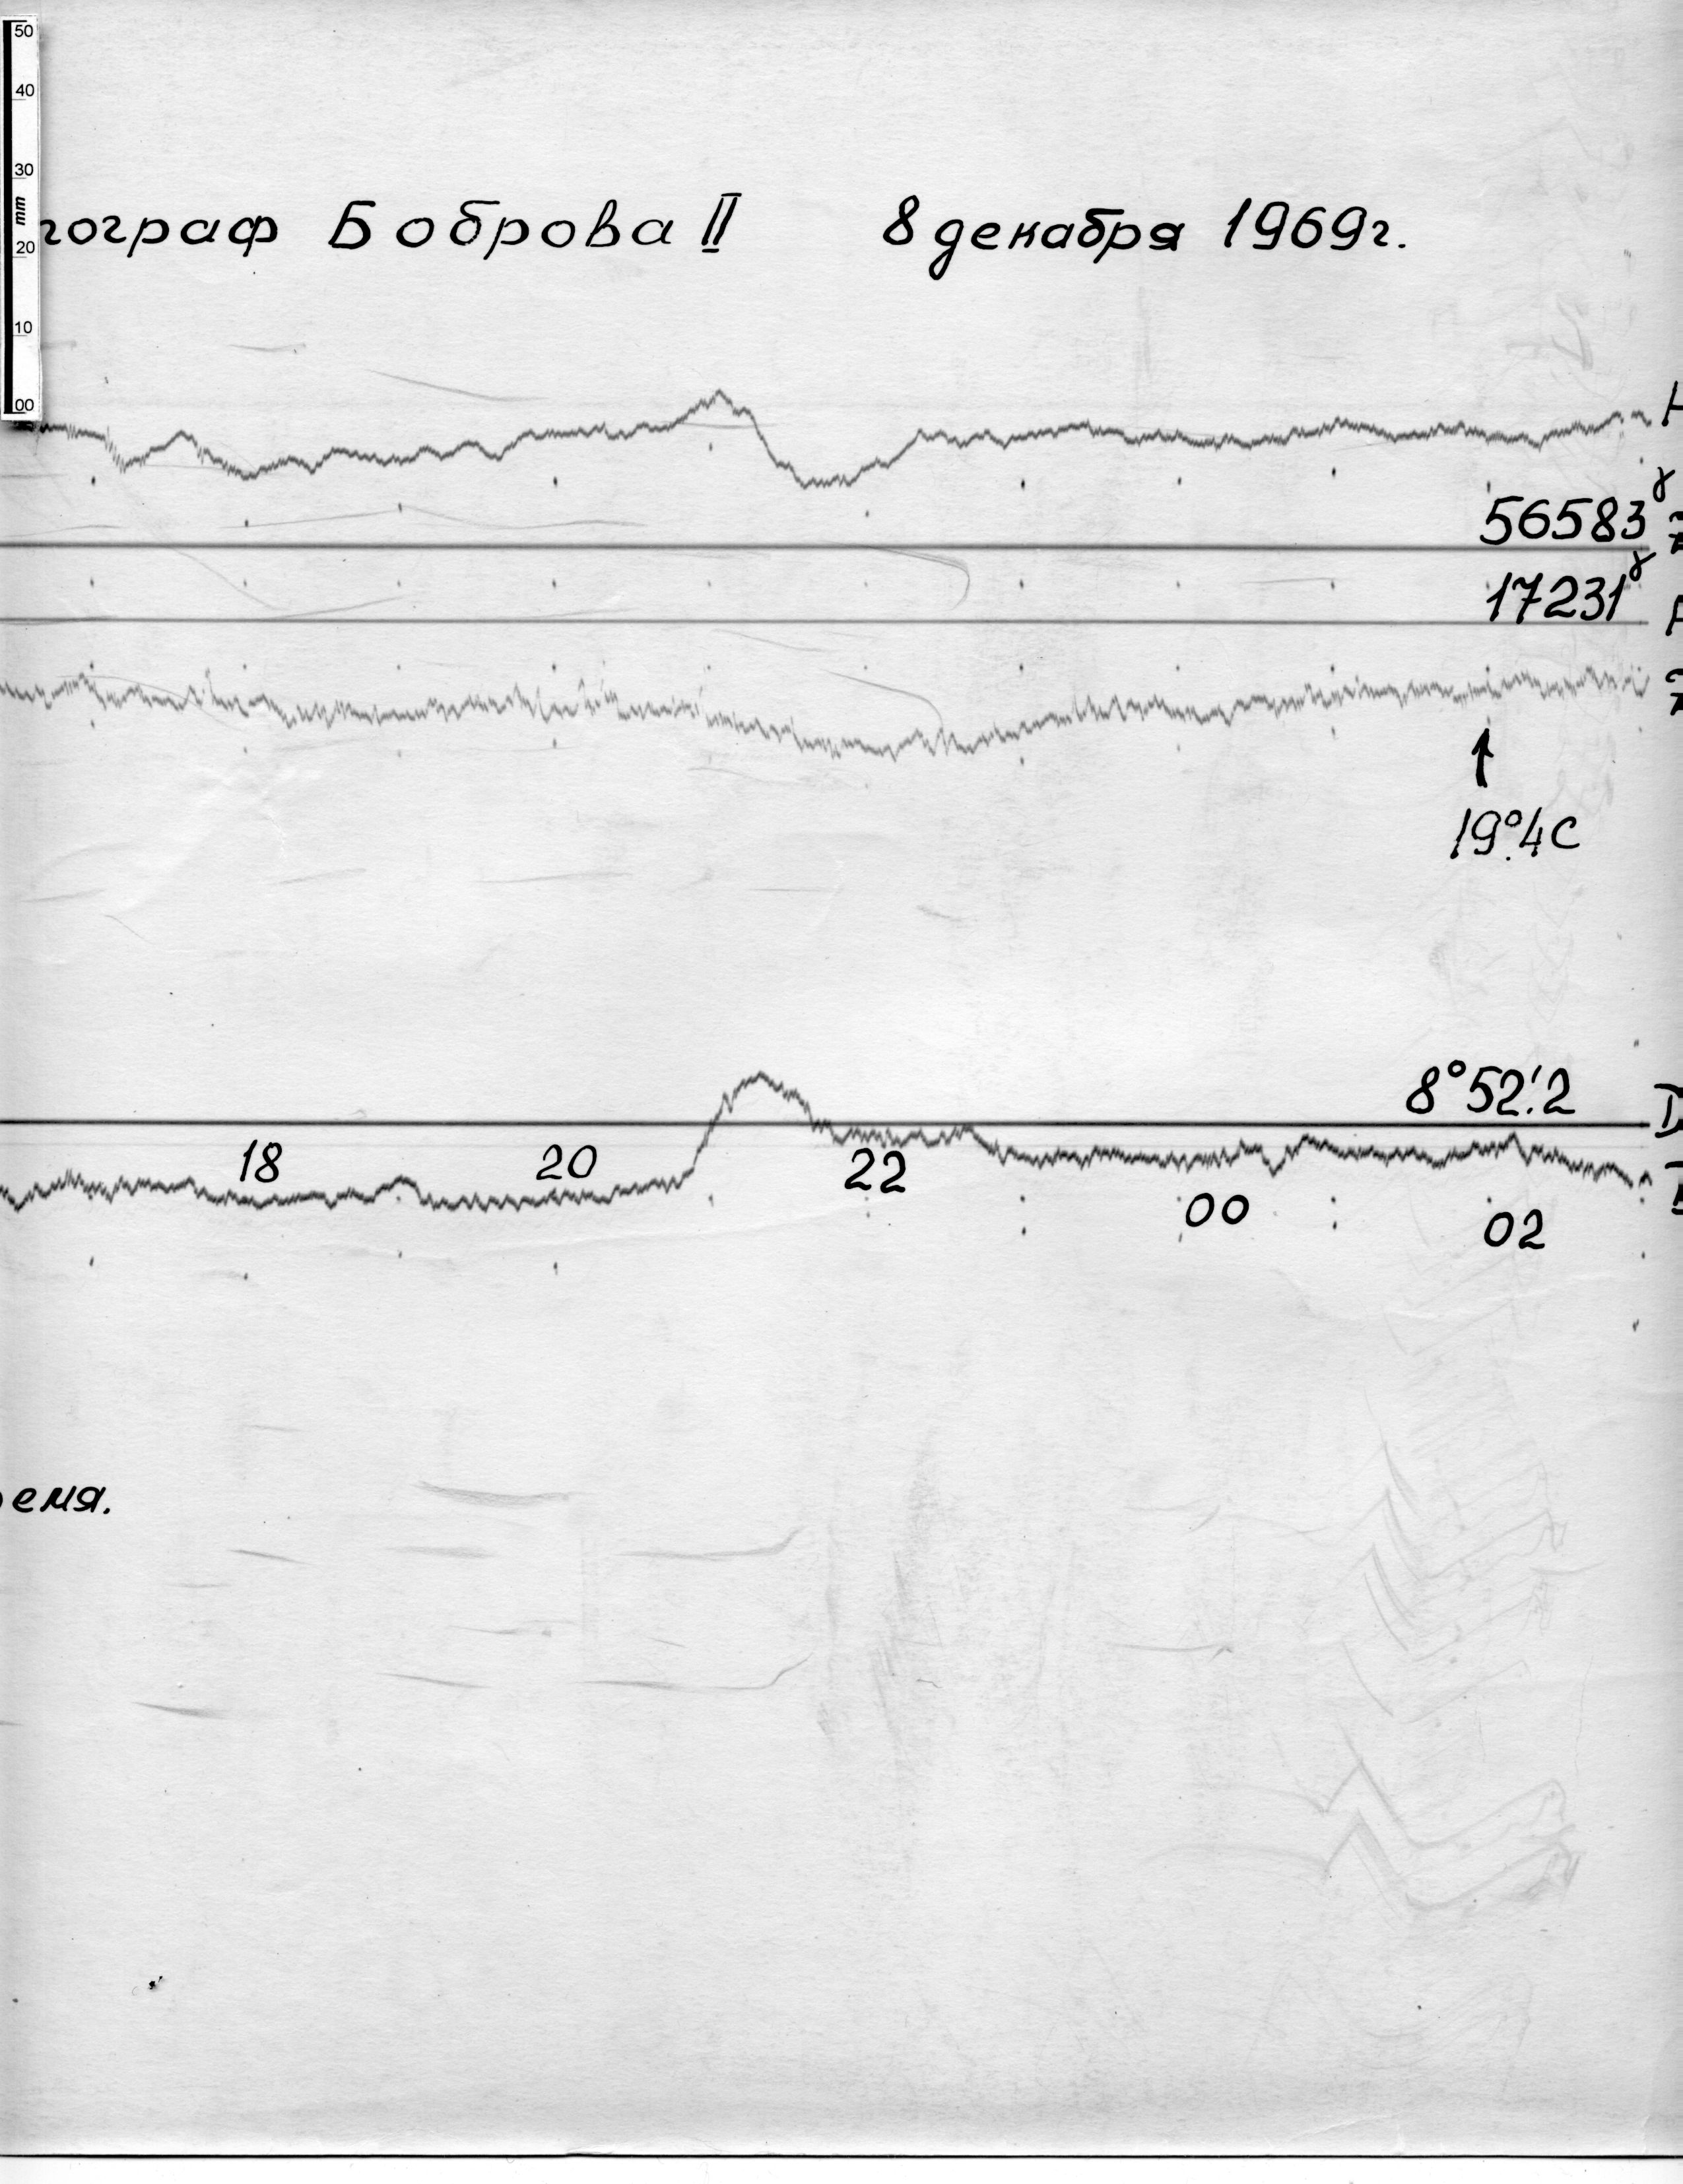 50
40
30
mm
20
10
00
тограф Боброва II 8 декабря 1969г.
H
56583γ Z
17231γ
Z
19°.4 C
8°52'.2 D
18 20 22 00 02
емя.